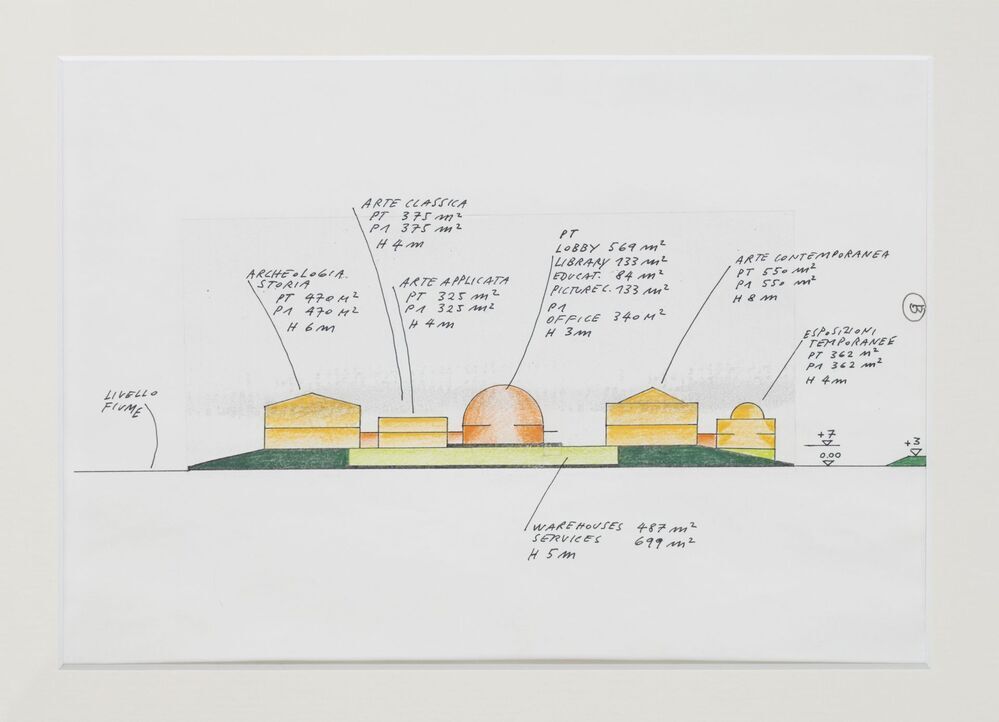 ARTE CLASSICA
PT 375 m²
P1 375 m²
H 4 m
ARCHEOLOGIA.
STORIA
PT 470 M²
P1 470 M²
H 6 m
ARTE APPLICATA
PT 325 m²
P1 325 m²
H 4 m
PT
LOBBY 569 m²
LIBRARY 133 m²
EDUCAT. 84 m²
PICTUREC. 133 m²
P1
OFFICE 340 M²
H 3 m
ARTE CONTEMPORANEA
PT 550 m²
P1 550 m²
H 8 m
B
ESPOSIZIONI
TEMPORANEE
PT 362 m²
P1 362 m²
H 4 m
LIVELLO
FIUME
+7
0.00
+3
WAREHOUSES 487 m²
SERVICES 699 m²
H 5 m